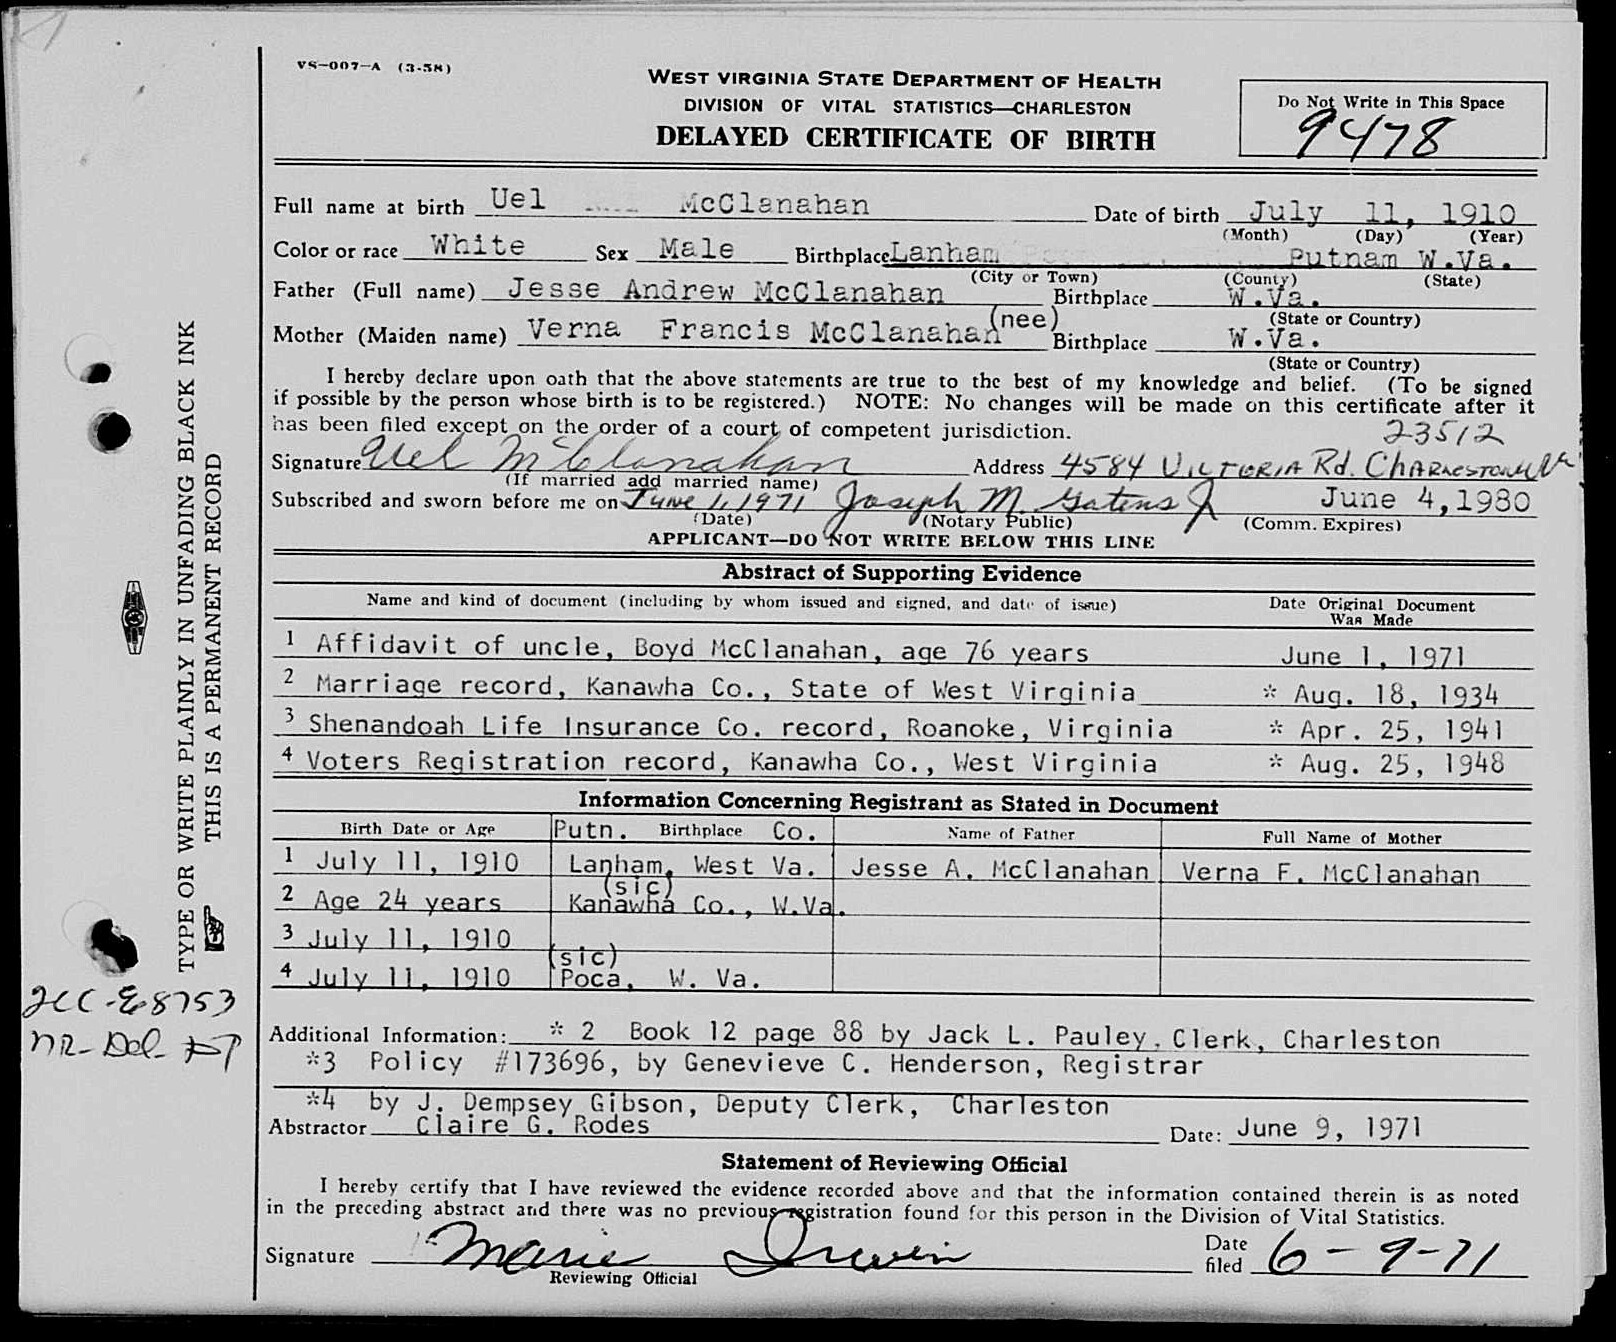 VS-007-A (3-58)
WEST VIRGINIA STATE DEPARTMENT OF HEALTH
DIVISION OF VITAL STATISTICS—CHARLESTON
DELAYED CERTIFICATE OF BIRTH
Do Not Write in This Space
9478
Full name at birth Uel McClanahan Date of birth July 11, 1910
(Month) (Day) (Year)
Color or race White Sex Male Birthplace Lanham Putnam W.Va.
(City or Town) (County) (State)
Father (Full name) Jesse Andrew McClanahan Birthplace W.Va.
(State or Country)
Mother (Maiden name) Verna Francis McClanahan (nee) Birthplace W.Va.
(State or Country)
I hereby declare upon oath that the above statements are true to the best of my knowledge and belief. (To be signed
if possible by the person whose birth is to be registered.) NOTE: No changes will be made on this certificate after it
has been filed except on the order of a court of competent jurisdiction.
23512
Signature Uel McClanahan Address 4584 VICTORIA Rd. CHARLESTON W Va
(If married add married name)
Subscribed and sworn before me on June 1, 1971 Joseph M. Gatens Jr June 4, 1980
(Date) (Notary Public) (Comm. Expires)
APPLICANT—DO NOT WRITE BELOW THIS LINE
Abstract of Supporting Evidence
Name and kind of document (including by whom issued and signed, and date of issue) Date Original Document Was Made
1 Affidavit of uncle, Boyd McClanahan, age 76 years June 1, 1971
2 Marriage record, Kanawha Co., State of West Virginia * Aug. 18, 1934
3 Shenandoah Life Insurance Co. record, Roanoke, Virginia * Apr. 25, 1941
4 Voters Registration record, Kanawha Co., West Virginia * Aug. 25, 1948
Information Concerning Registrant as Stated in Document
Birth Date or Age Putn. Birthplace Co. Name of Father Full Name of Mother
1 July 11, 1910 Lanham, West Va. Jesse A. McClanahan Verna F. McClanahan
(sic)
2 Age 24 years Kanawha Co., W.Va.
3 July 11, 1910
(sic)
4 July 11, 1910 Poca, W. Va.
Additional Information: * 2 Book 12 page 88 by Jack L. Pauley, Clerk, Charleston
*3 Policy #173696, by Genevieve C. Henderson, Registrar
*4 by J. Dempsey Gibson, Deputy Clerk, Charleston
Abstractor Claire G. Rodes Date: June 9, 1971
Statement of Reviewing Official
I hereby certify that I have reviewed the evidence recorded above and that the information contained therein is as noted
in the preceding abstract and there was no previous registration found for this person in the Division of Vital Statistics.
Signature Marie Irwin Date filed 6-9-71
Reviewing Official
TYPE OR WRITE PLAINLY IN UNFADING BLACK INK
THIS IS A PERMANENT RECORD
NR-Del-